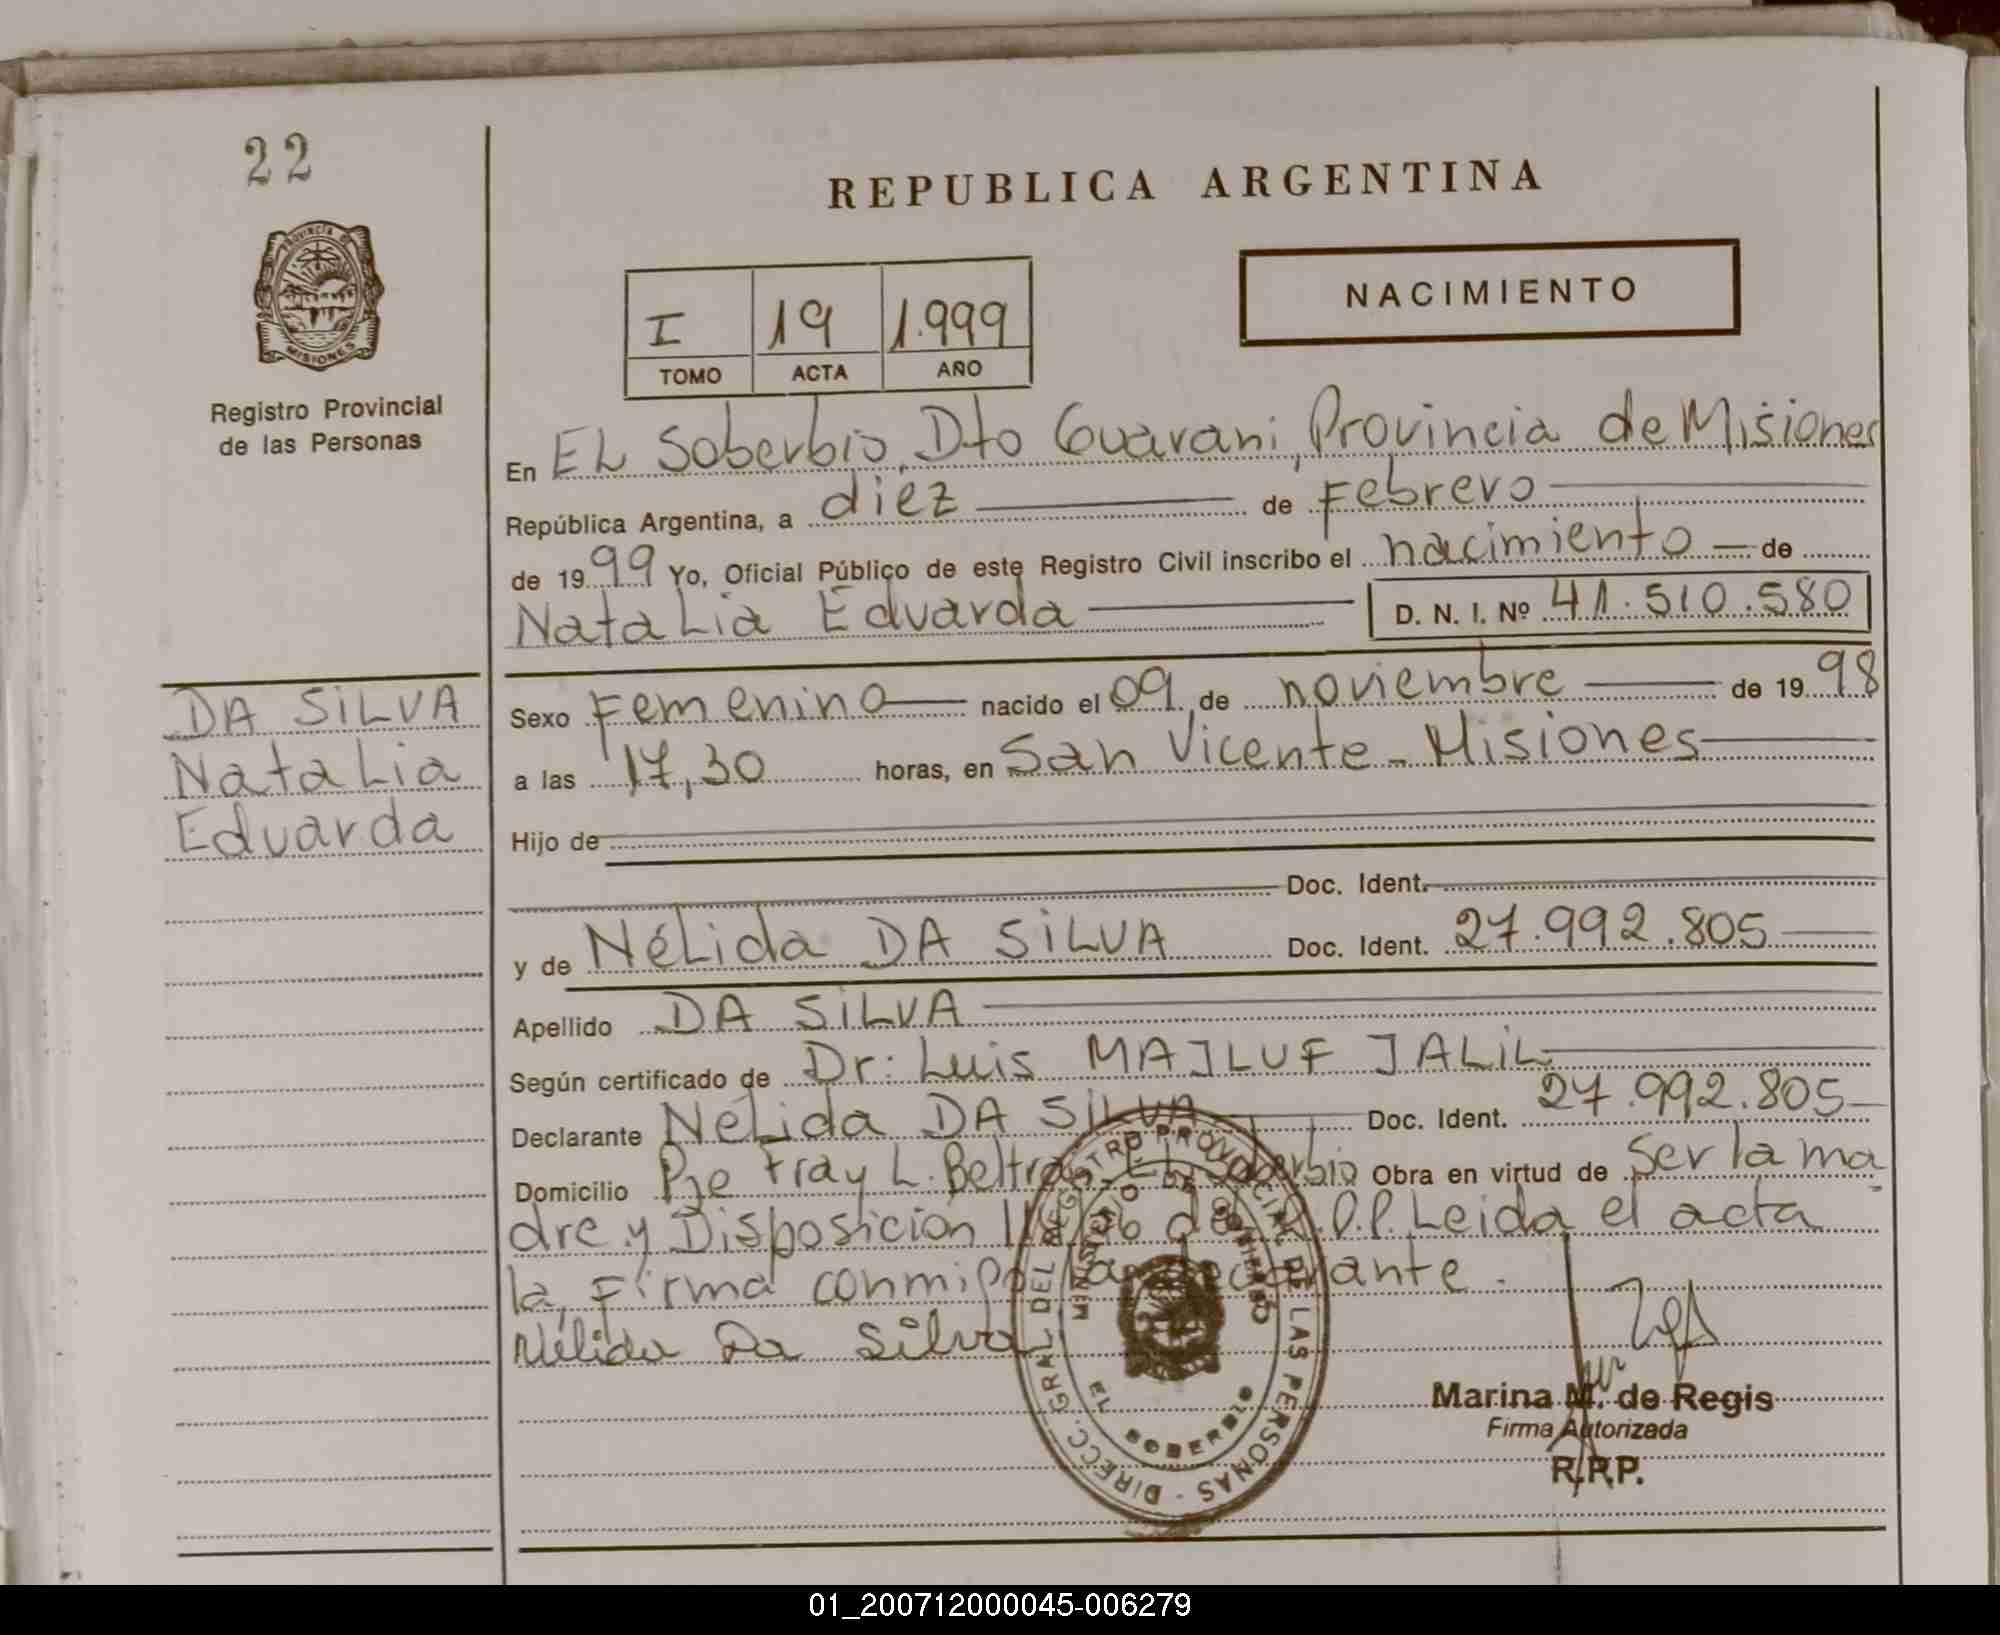 22
REPUBLICA ARGENTINA
PROVINCIA DE
MISIONES
Registro Provincial
de las Personas
NACIMIENTO
I 19 1.999
TOMO ACTA AÑO
En EL Soberbio, Dto Guarani, Provincia de Misiones
República Argentina, a diez de Febrero
de 1999 Yo, Oficial Público de este Registro Civil inscribo el nacimiento de
Natalia Eduarda D. N. I. Nº 41.510.580
DA SILVA
Natalia
Eduarda
Sexo Femenino nacido el 09 de noviembre de 1998
a las 17,30 horas, en San Vicente - Misiones
Hijo de
Doc. Ident.
y de Nélida DA SILVA Doc. Ident. 27.992.805
Apellido DA SILVA
Según certificado de Dr: Luis MAJLUF JALIL
Declarante Nélida DA SILVA Doc. Ident. 27.992.805
Domicilio Pje Fray L. Beltran Soberbio Obra en virtud de ser la ma
dre y Disposicion P.P. Leida el acta
la, Firma conmigo la declarante.
Nélida Da Silva
DIRECC. GRAL DEL REGISTRO PROVINCIAL DE LAS PERSONAS -
MINISTERIO DE GOBIERNO
EL SOBERBIO
Marina M. de Regis
Firma Autorizada
R.P.P.
01_200712000045-006279